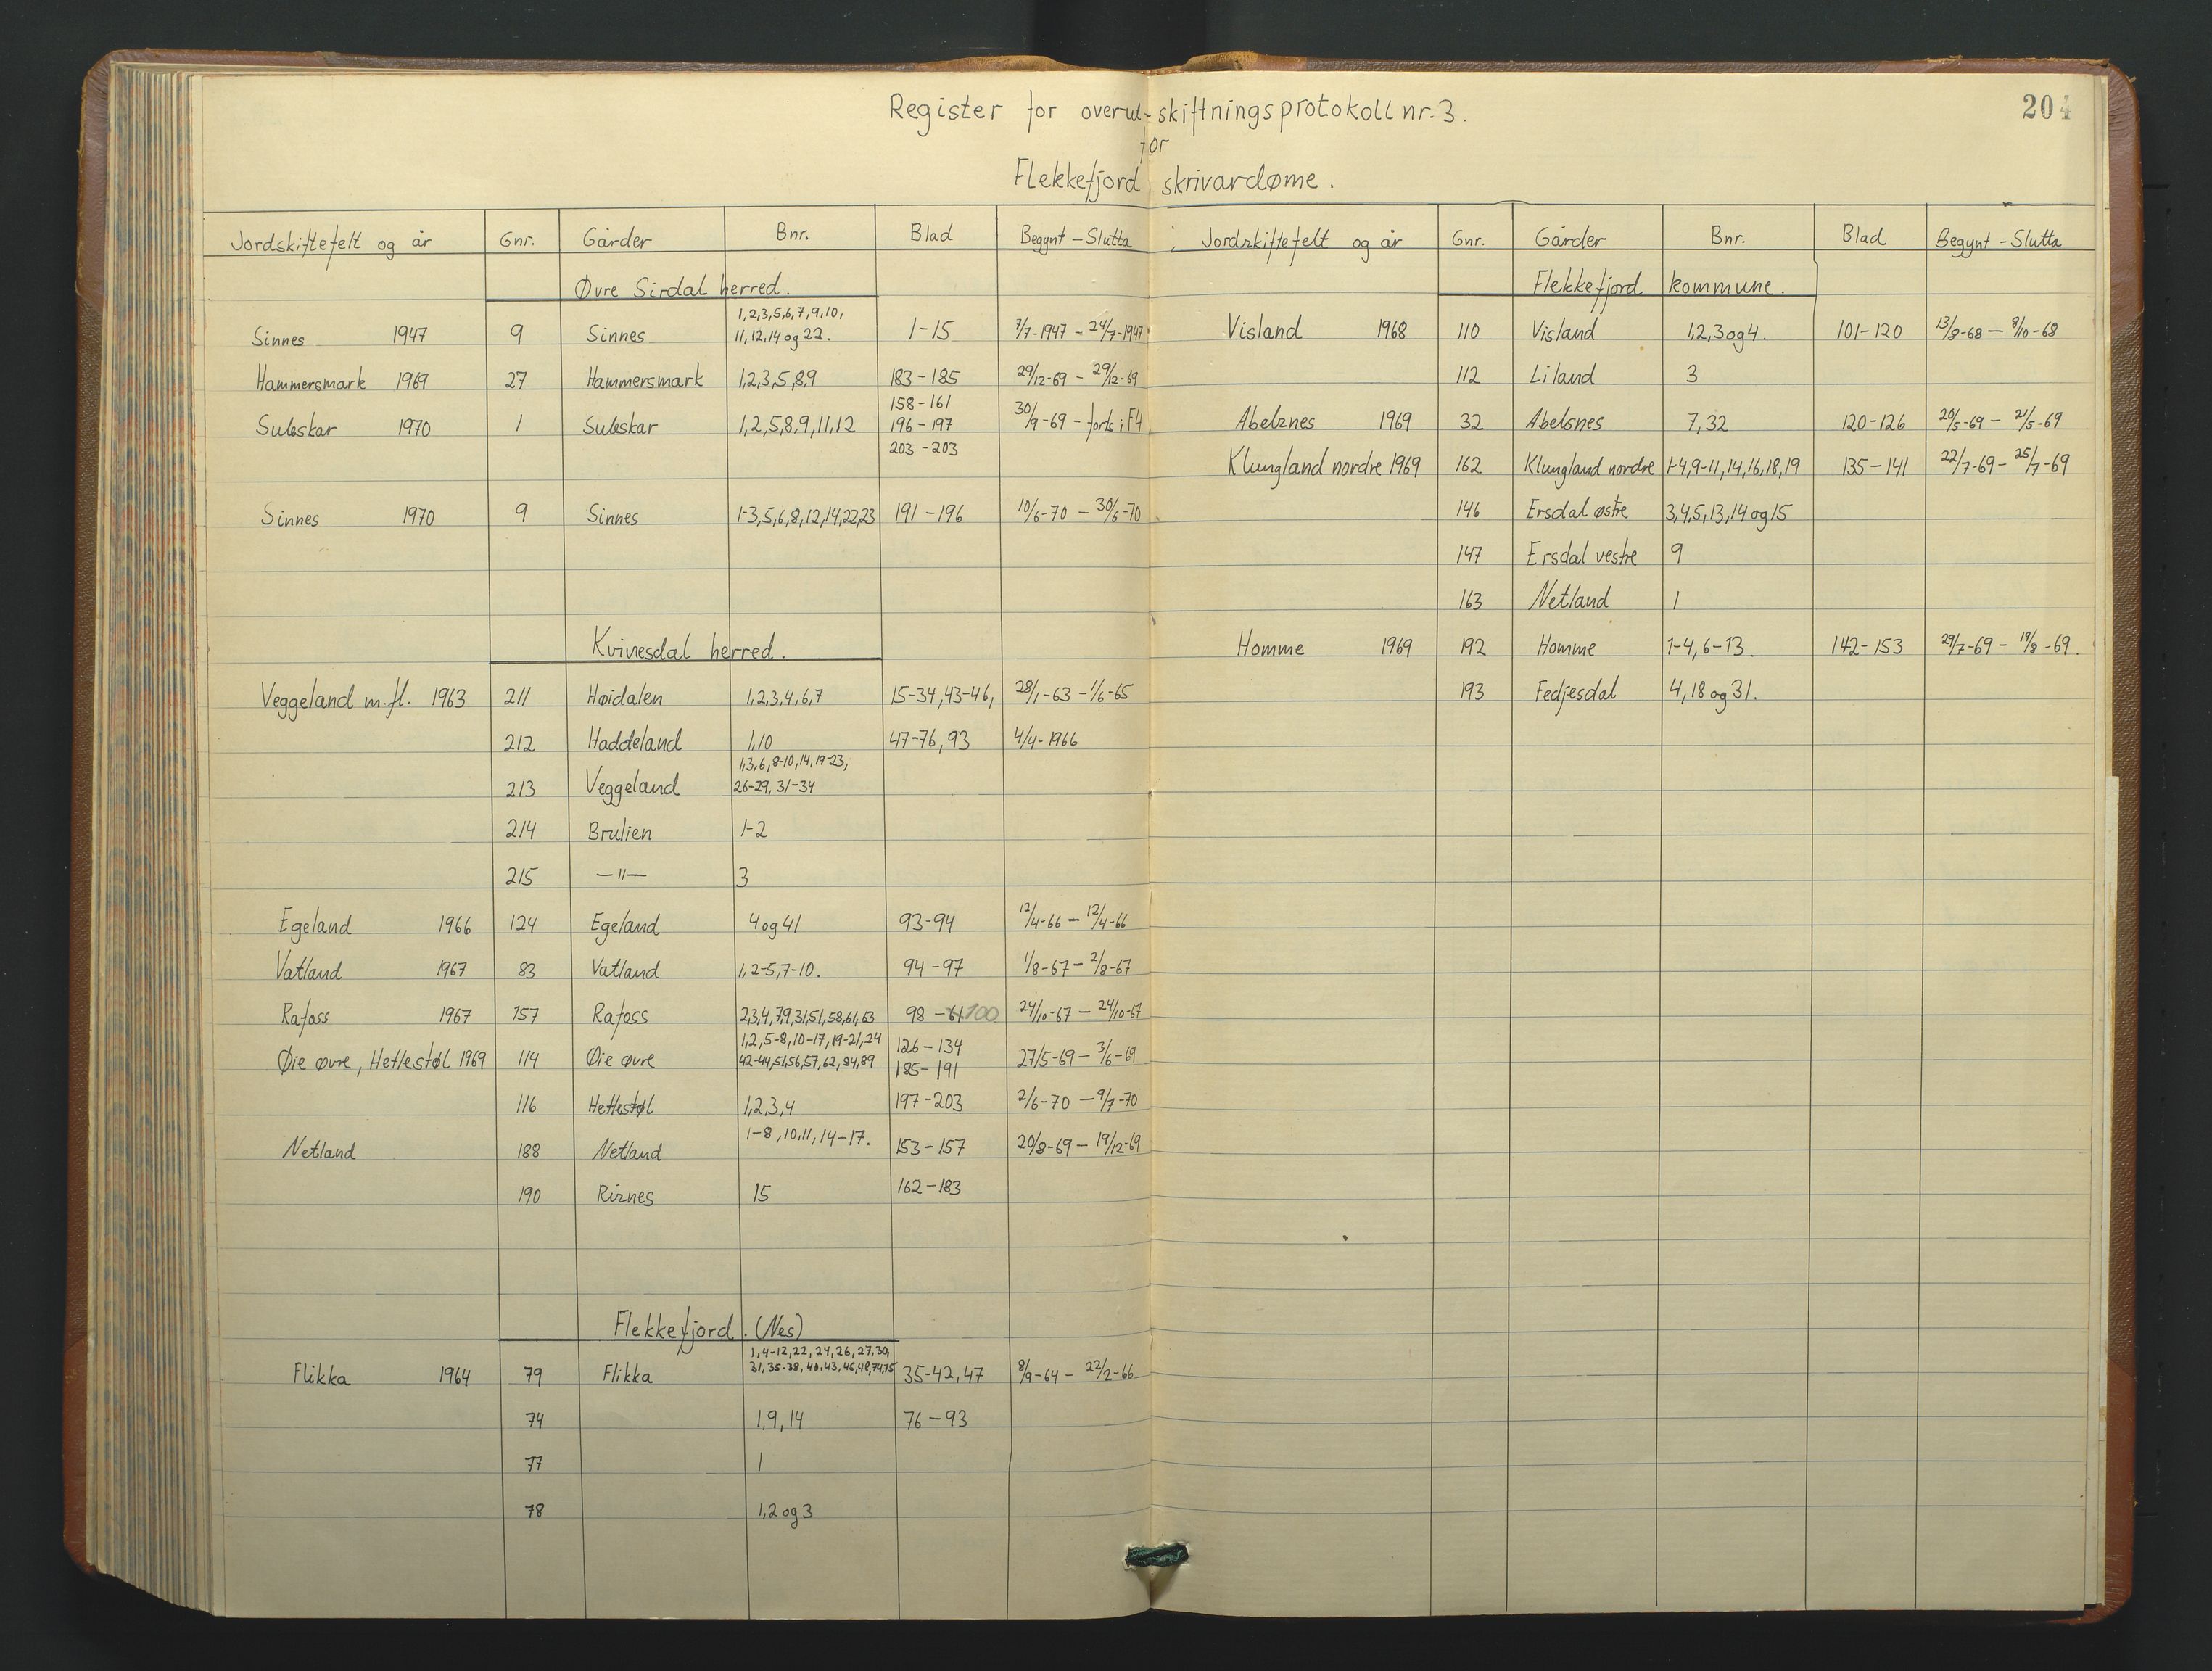 204
Register for overut-skiftningsprotokoll nr. 3.
for
Flekkefjord skrivardøme.
Jordskiftefelt og år Gnr. Gårder Bnr. Blad Begynt - Slutta
Øvre Sirdal herred.
1,2,3,5,6,7,9,10,
Sinnes 1947 9 Sinnes 11,12,14 og 22. 1-15 7/7-1947 - 24/7-1947
Hammersmark 1969 27 Hammersmark 1,2,3,5,8,9 183-185 29/12-69 - 29/12-69
158-161
Suleskar 1970 1 Suleskar 1,2,5,8,9,11,12 196-197 30/9-69 - forts i F4
203-203
Sinnes 1970 9 Sinnes 1-3,5,6,8,12,14,22,23 191-196 10/6-70 - 30/6-70
Kvinesdal herred.
Veggeland m.fl. 1963 211 Høidalen 1,2,3,4,6,7 15-34,43-46, 28/1-63 - 1/6-65
212 Haddeland 1,10 47-76,93 4/4-1966
1,3,6,8-10,14,19-23,
213 Veggeland 26-29, 31-34
214 Brulien 1-2
215 -"- 3
Egeland 1966 124 Egeland 4 og 41 93-94 12/4-66 - 12/4-66
Vatland 1967 83 Vatland 1,2-5,7-10. 94-97 1/8-67 - 2/8-67
Rafoss 1967 157 Rafoss 2,3,4,7,9,31,51,58,61,63 98-100 24/10-67 - 24/10-67
1,2,5-8,10-17,19-21,24 126-134
Øie øvre, Hettestøl 1969 114 Øie øvre 42-44,51,56,57,62,84,89 185-191 27/5-69 - 3/6-69
116 Hettestøl 1,2,3,4 197-203 2/6-70 - 9/7-70
1-8,10,11,14-17.
Netland 188 Netland 153-157 20/8-69 - 19/12-69
190 Risnes 15 162-183
Flekkefjord. (Nes)
1,4-12,22,24,26,27,30,
31,35-38,40,43,46,48,74,75
Flikka 1964 79 Flikka 35-42,47 8/9-64 - 22/2-66
74 1,9,14 76-93
77 1
78 1,2 og 3
Jordskiftefelt og år Gnr. Gårder Bnr. Blad Begynt - Slutta
Flekkefjord kommune.
Visland 1968 110 Visland 1,2,3 og 4. 101-120 13/8-68 - 8/10-68
112 Liland 3
Abelsnes 1969 32 Abelsnes 7,32 120-126 20/5-69 - 21/5-69
Klungland nordre 1969 162 Klungland nordre 1-4,9-11,14,16,18,19 135-141 22/7-69 - 25/7-69
146 Ersdal østre 3,4,5,13,14 og 15
147 Ersdal vestre 9
163 Netland 1
Homme 1969 192 Homme 1-4,6-13. 142-153 29/7-69 - 19/8-69.
193 Fedjesdal 4,18 og 31.